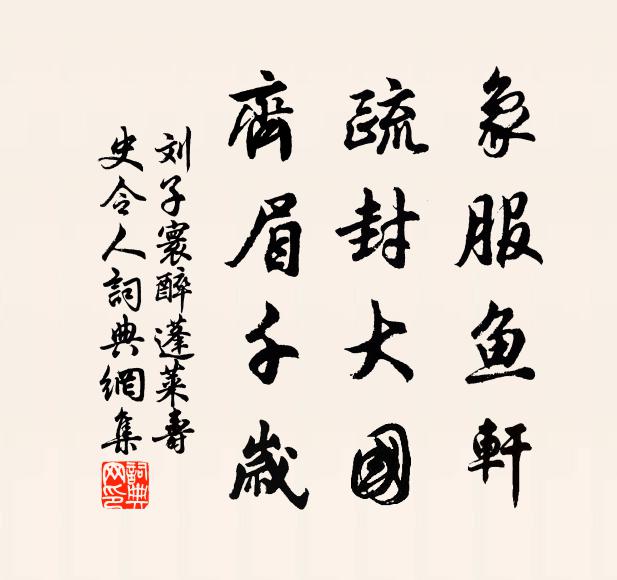 象服魚軒
疏封大國
齊眉千歲
刘子寰醉蓬萊壽
史令人詞典網集
詞典
网印